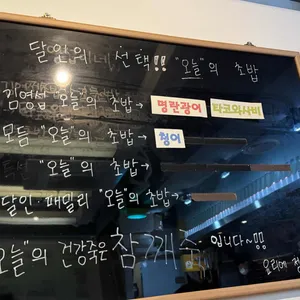 달인의 선택!! "오늘"의 초밥
"오늘"의 초밥→ 명란광어 타코와사비
모듬 "오늘"의 초밥→ 청어
"오늘"의 초밥→
달인·패밀리 "오늘"의 초밥→
오늘"의 건강죽은 참깨죽 입니다~!!